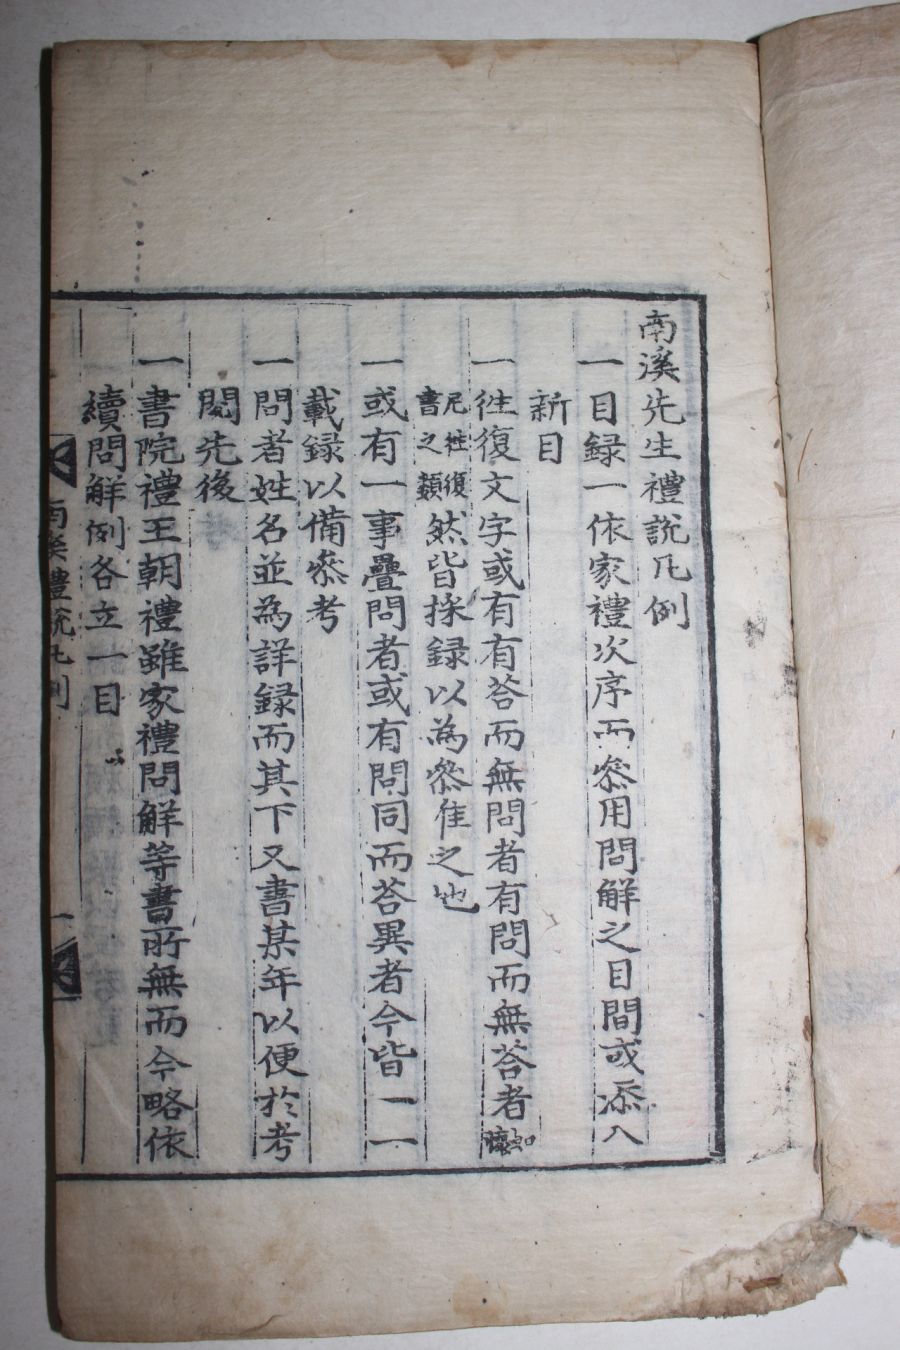 南溪先生禮說凡例
一目録一依家禮次序而叅用問解之目間或添入
新目
一徃復文字或有有荅而無問者有問而無荅者如懷
尼徃復書之類然皆採録以為叅隹之地
一或有一事疊問者或有問同而荅異者今皆一一
載録以備叅考
一問者姓名並為詳録而其下又書某年以便於考
閱先後
一書院禮王朝禮雖家禮問解等書所無而今略依
續問解例各立一目
南溪禮說凡例 一